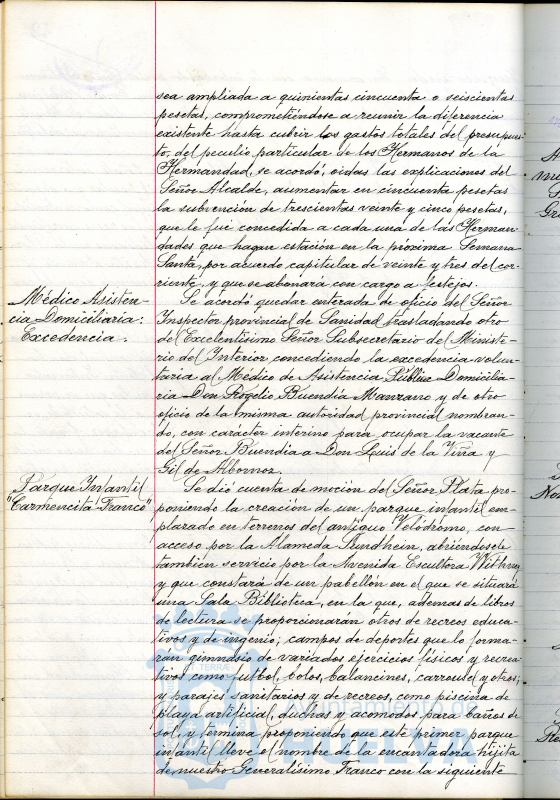 sea ampliada a quinientas cincuenta o seiscientas
pesetas, comprometiéndose a reunir la diferencia
existente hasta cubrir los gastos totales del presupues-
to, del peculio particular de los Hermanos de la
Hermandad, se acordó, oidas las explicaciones del
Señor Alcalde, aumentar en cincuenta pesetas
la subvención de trescientas veinte y cinco pesetas,
que le fue concedida a cada una de las Herman-
dades que hagan estación en la próxima Semana
Santa, por acuerdo capitular de veinte y tres del cor-
riente, y que se abonará con cargo a festejos.
Médico Asisten-
cia Domiciliaria:
Excedencia.
Se acordó quedar enterada de oficio del Señor
Inspector provincial de Sanidad trasladando otro
del Excelentisimo Señor Subsecretario del Ministe-
rio del Interior concediendo la excedencia volun-
taria al Médico de Asistencia Pública Domicilia-
ria Don Rogelio Buendia Manzano y de otro
oficio de la misma autoridad provincial nombran-
do, con carácter interino para ocupar la vacante
del Señor Buendia a Don Luis de la Viña y
Gil de Albornoz.
Parque Infantil
"Carmencita Franco",
Se dió cuenta de moción del Señor Plata pro-
poniendo la creación de un parque infantil em-
plazado en terrenos del antiguo Velódromo, con
acceso por la Alameda Sundhein, abriéndosele
tambien servicio por la Avenida Escultora
y que constará de un pabellón en el que se situará
una Sala Biblioteca, en la que, ademas de libros
de lectura se proporcionarán otros de recreos educa-
tivos y de ingenio; campos de deportes que lo forma-
rán gimnasio de variados ejercicios físicos y recrea-
tivos como futbol, bolos, balancines, carrousel y otros;
y parajes sanitarios y de recreos, como piscina de
playa artificial, duchas y acomodos para baños de
sol, y termina proponiendo que este primer parque
infantil lleve el nombre de la encantadora hijita
de nuestro Generalísimo Franco con la siguiente
TERRÆ
Ayuntamiento de
HUELVA